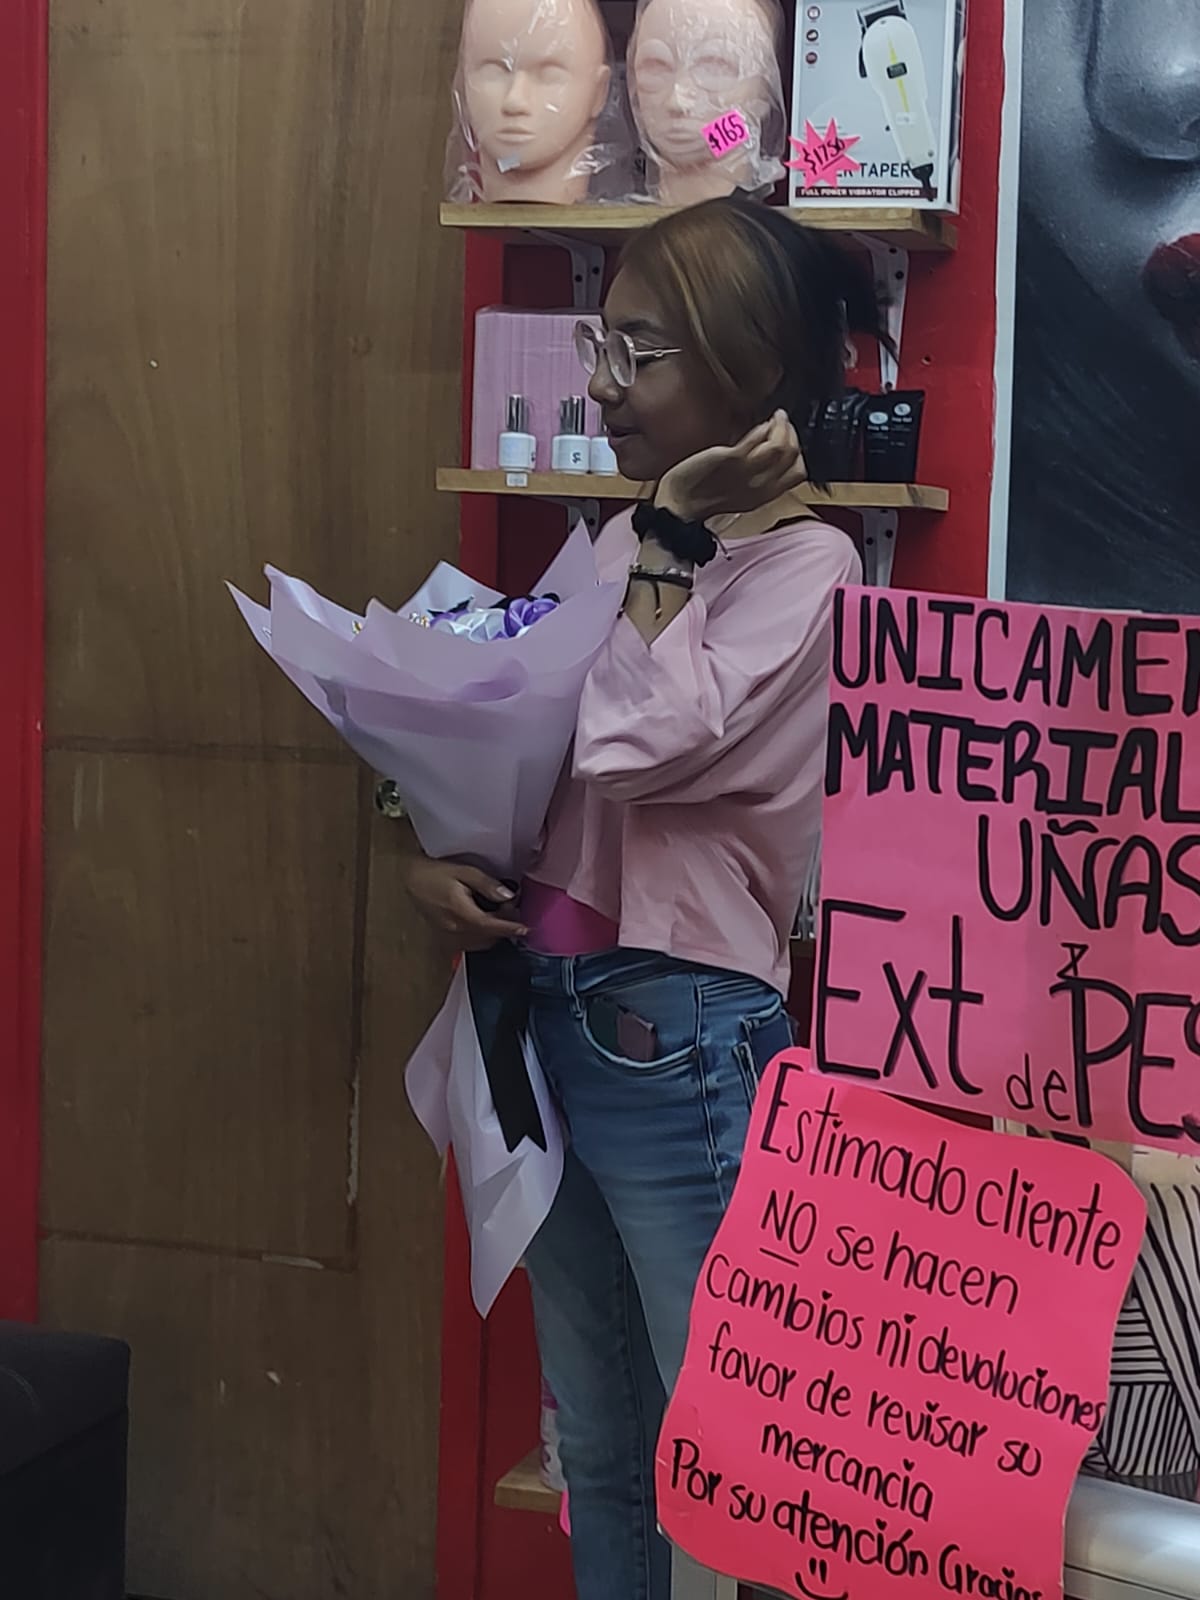 $165
$1750
TAPER
FULL POWER VIBRATOR CLIPPER
MATERIAL
UÑAS
Ext de
Estimado cliente
NO se hacen
cambios ni devoluciones
favor de revisar su
mercancia
Por su atención Gracias